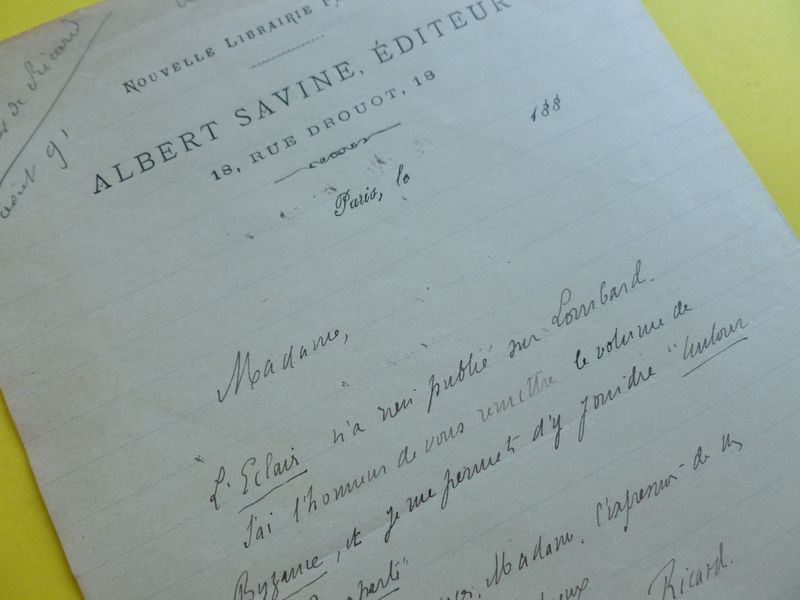 de Ricard
août 91
NOUVELLE LIBRAIRIE
ALBERT SAVINE, ÉDITEUR
18, RUE DROUOT, 18
Paris, le 188
Madame,
L'Eclair n'a rien publié sur Lombard.
J'ai l'honneur de vous remettre le volume de
Byzance, et je me permets d'y joindre "Autour
Madame, l'expression de m
Ricard.